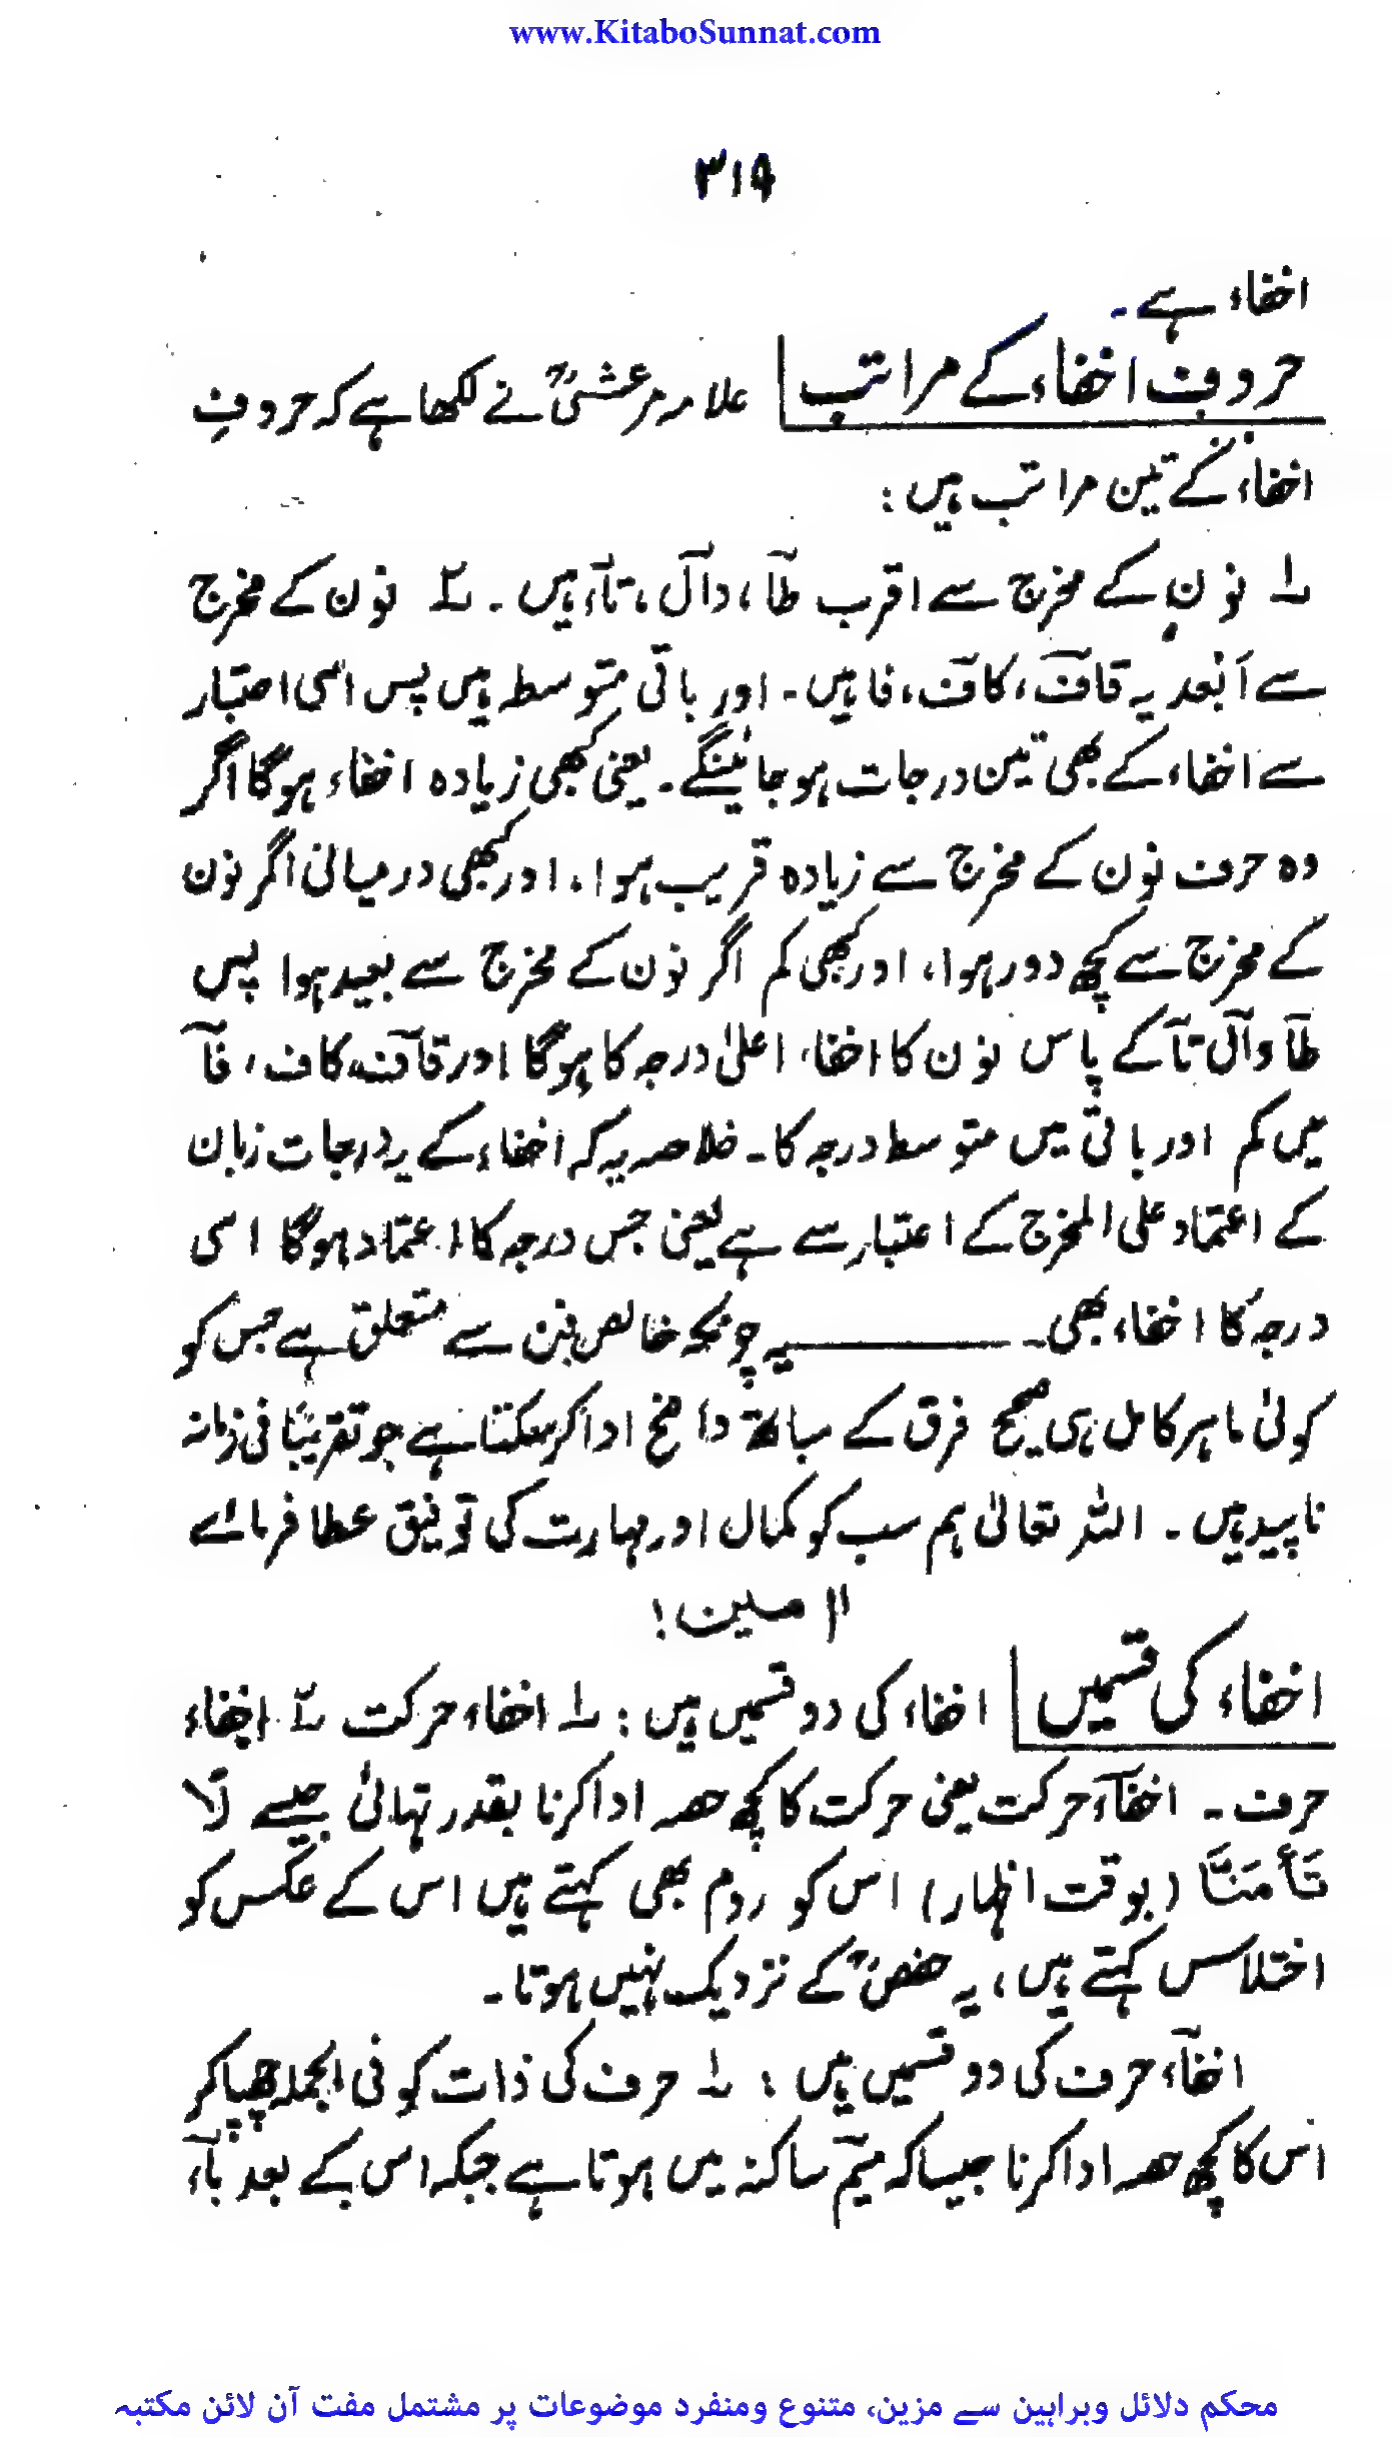 www.KitaboSunnat.com
۳۱۹
اخفاء ہے۔
حروف اخفاء کے مراتب علامہ مرعشیؒ نے لکھا ہے کہ حروفِ
اخفاء کے تین مراتب ہیں :
۱؎ نون کے مخرج سے اقرب طآ، دآل، تآء ہیں۔ ۲؎ نون کے مخرج
سے اَبْعد یہ قآف، کآف، فا ہیں۔ اور باقی متوسط ہیں پس اسی اعتبار
سے اخفاء کے بھی تین درجات ہو جائینگے۔ یعنی کبھی زیادہ اخفاء ہوگا اگر
وہ حرف نون کے مخرج سے زیادہ قریب ہوا، اور کبھی درمیانی اگر نون
کے مخرج سے کچھ دور ہوا، اور کبھی کم اگر نون کے مخرج سے بعید ہوا پس
طآ دآل تآ کے پاس نون کا اخفاء اعلیٰ درجہ کا ہوگا اور قآف، کاف، فآ
میں کم اور باقی میں متوسط درجہ کا۔ خلاصہ یہ کہ اخفاء کے یہ درجات زبان
کے اعتماد علی المخرج کے اعتبار سے ہے یعنی جس درجہ کا اعتماد ہوگا اسی
درجہ کا اخفاء بھی۔ ——— یہ چونکہ خالص فن سے متعلق ہے جس کو
کوئی ماہر کامل ہی صحیح فرق کے ساتھ واضح ادا کر سکتا ہے جو تقریباً فی زمانہ
ناپید ہیں۔ اللہ تعالیٰ ہم سب کو کمال اور مہارت کی توفیق عطا فرمائے
آمین!
اخفاء کی قسمیں اخفاء کی دو قسمیں ہیں : ۱؎ اخفاء حرکت ۲؎ اخفاء
حرف۔ اخفآء حرکت یعنی حرکت کا کچھ حصہ ادا کرنا بقدر تہائی جیسے لَا
تَأْمَنَّا (بوقت اظہار) اس کو روم بھی کہتے ہیں اس کے عکس کو
اختلاس کہتے ہیں، یہ حفصؒ کے نزدیک نہیں ہوتا۔
اخفآء حرف کی دو قسمیں ہیں : ۱؎ حرف کی ذات کو فی الجملہ چھپا کر
اس کا کچھ حصہ ادا کرنا جیسا کہ میمؔ ساکنہ میں ہوتا ہے جبکہ اس کے بعد بآء
محکم دلائل وبراہین سے مزین، متنوع ومنفرد موضوعات پر مشتمل مفت آن لائن مکتبہ